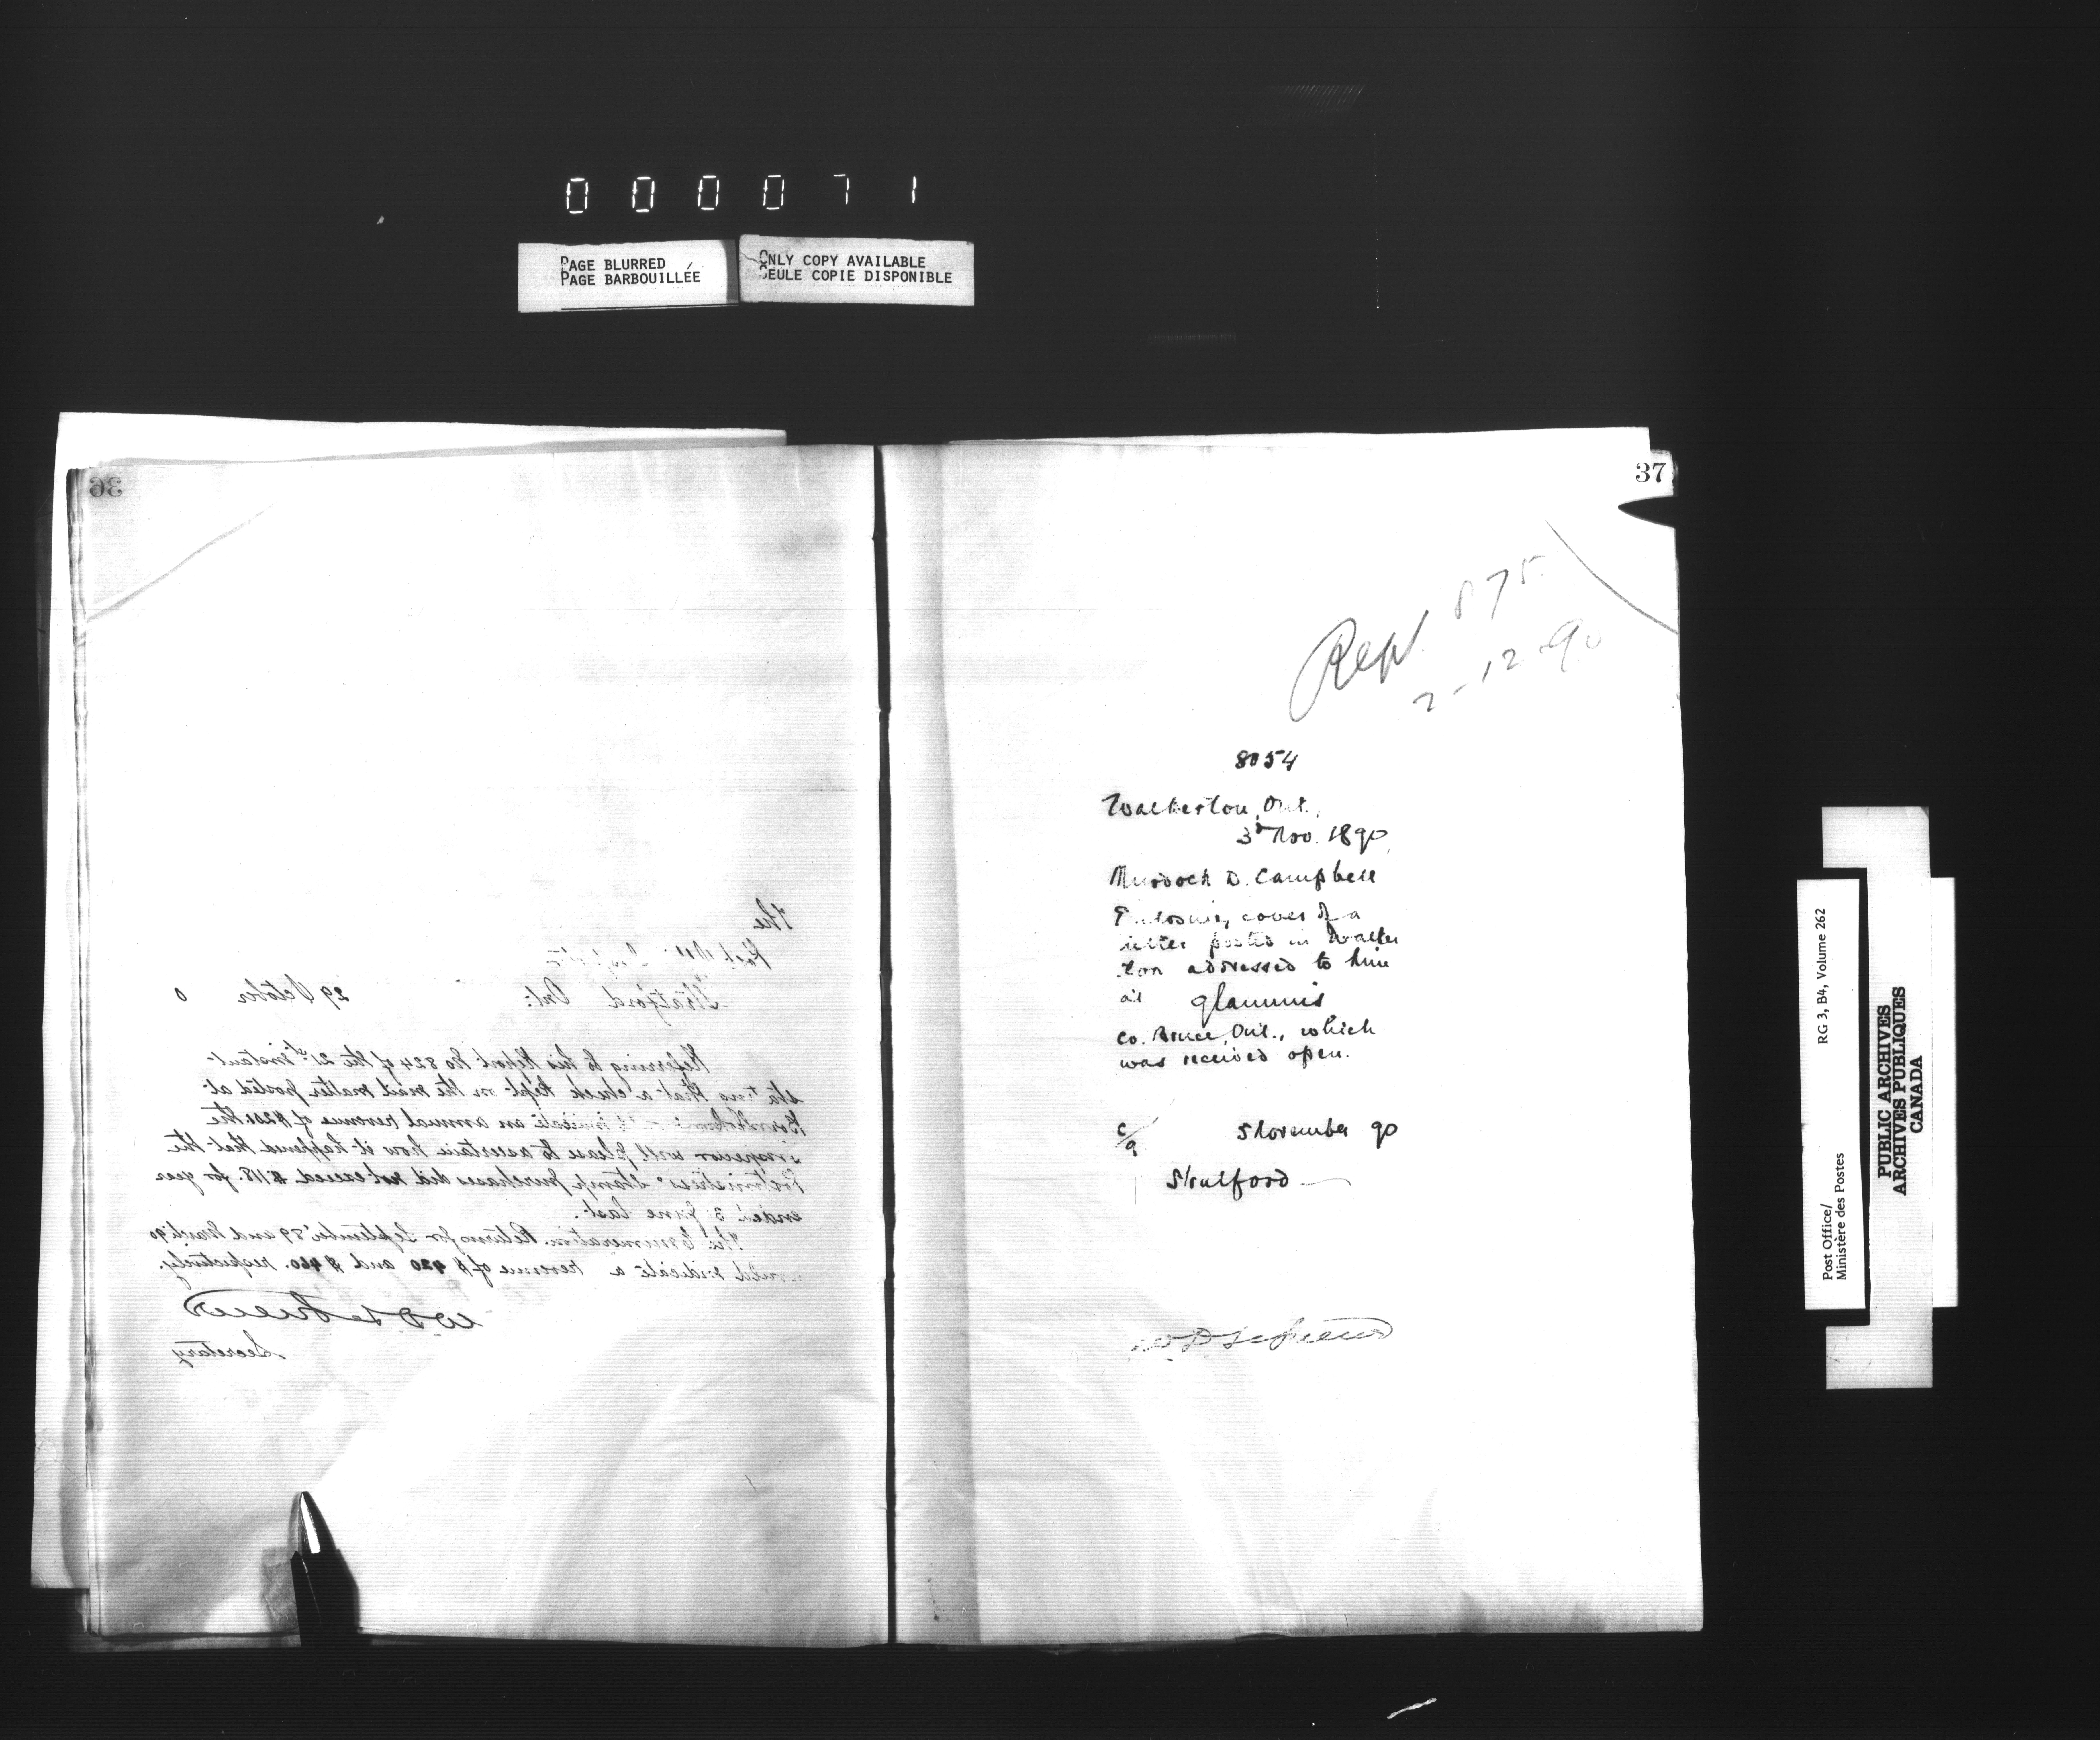 000071
PAGE BLURRED
PAGE BARBOUILLÉE
ONLY COPY AVAILABLE
SEULE COPIE DISPONIBLE
36
The
Stratford Ont: 29 October 0
Referring to his Report No 824 of the 21st instant
stating that a check kept on the mail matter posted at
indicate an annual revenue of $201. the
Inspector will please to ascertain how it happened that the
Postmistress' stamp purchases did not exceed $118. for year
ended 3 June last.
The Enumeration Returns for September '89 and March '90
would indicate a revenue of $420 and $460. respectively.
W D LeSueur
Secretary
37
Rept 875
2-12-90
8054
Walkerton, Ont.,
3d Nov. 1890
Murdoch D. Campbell
Enclosing cover of a
letter posted in Walker
ton addressed to him
at Glammis
Co. Bruce, Ont., which
was received open.
c/a 5 November 90
Stratford
W D LeSueur
Post Office/
Ministère des Postes
RG 3, B4, Volume 262
PUBLIC ARCHIVES
ARCHIVES PUBLIQUES
CANADA